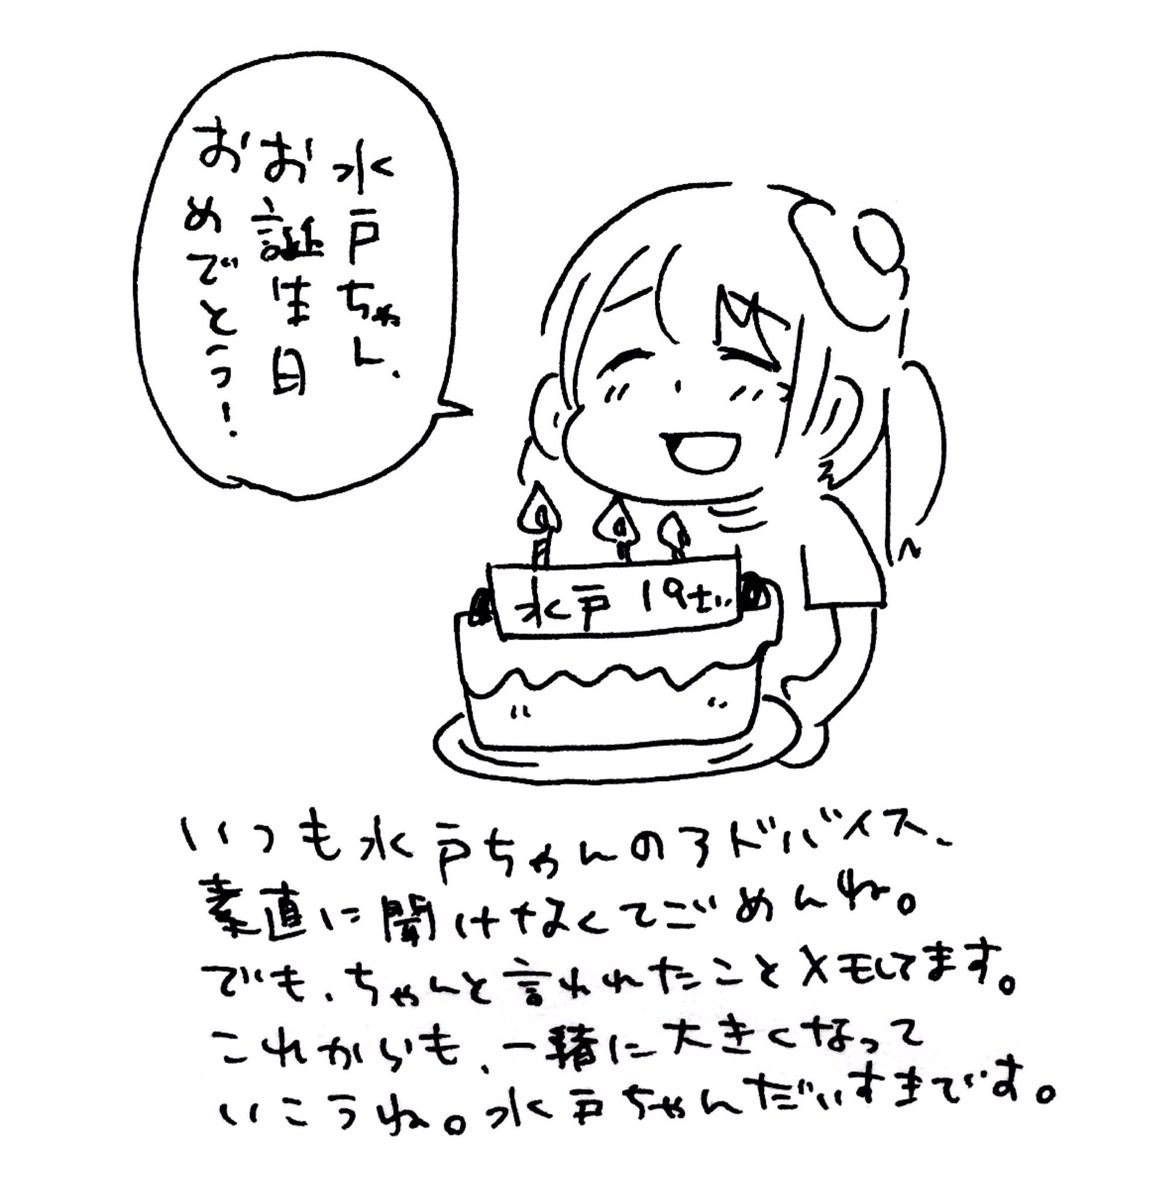 水戸ちゃん、
お誕生日
おめでとう!
水戸 19さい
いつも水戸ちゃんのアドバイス、
素直に聞けなくてごめんね。
でも、ちゃんと言われたことメモしてます。
これからも、一緒に大きくなって
いこうね。水戸ちゃんだいすきです。